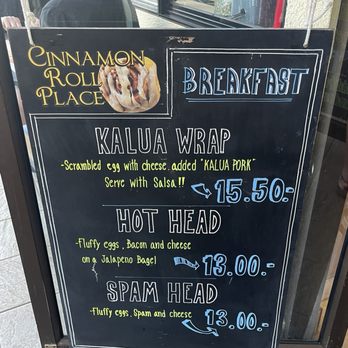 CINNAMON
ROLL
PLACE
BREAKFAST
KALUA WRAP
-Scrambled egg with cheese added "KALUA PORK"
Serve with Salsa!!
15.50.-
HOT HEAD
-Fluffy eggs, Bacon and cheese
on a Jalapeno Bagel
13.00.-
SPAM HEAD
-Fluffy eggs, Spam and cheese
13.00.-